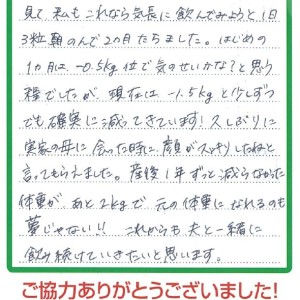 見て私もこれなら気長に飲んでみようと、1日
3粒朝のんで2カ月たちました。はじめの
1カ月は、-0.5kg位で気のせいかな?と思う
程でしたが、現在は-1.5kgと少しずつ
でも確実に減ってきています!久しぶりに
実家の母に会った時に、顔がスッキリしたねと
言ってもらえました。産後1年ずっと減らなかった
体重が、あと2kgで元の体重になれるのも
夢じゃない!!これからも夫と一緒に
飲み続けていきたいと思います。
ご協力ありがとうございました!